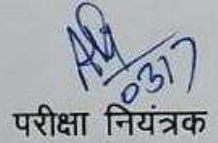 0317
परीक्षा नियंत्रक